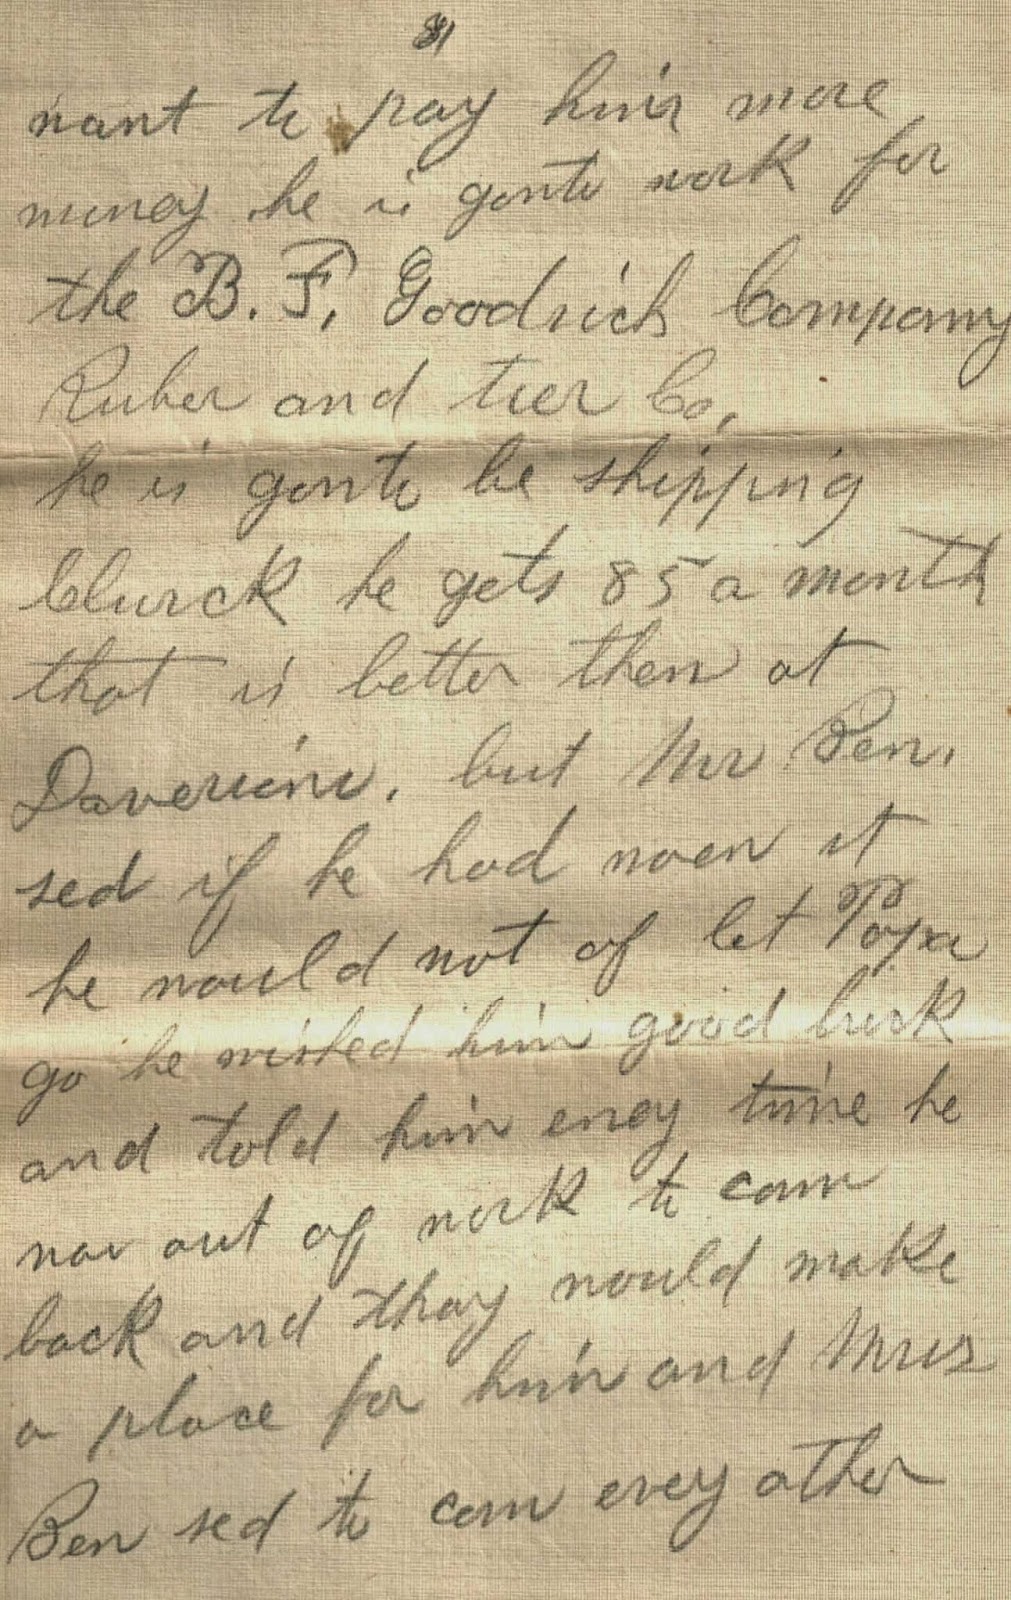 want to pay him more
money he is gonto work for
the B. F. Goodrich Company
Ruber and tier Co.
he is gonto be shipping
Clurck he gets 85 a month
that is better then at
but Mr Ben.
sed if he had noen it
he would not of let Papa
go he wished him good luck
and told him eney time he
was out of work to com
back and thay would make
a place for him and Mrs
Ben sed to com evrey other